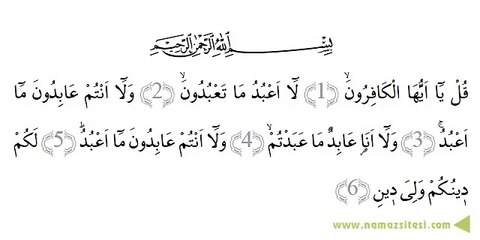 بِسْمِ اللهِ الرَّحْمٰنِ الرَّحِيمِ
قُلْ يَٓا اَيُّهَا الْكَافِرُونَۙ ﴿1﴾ لَٓا اَعْبُدُ مَا تَعْبُدُونَۙ ﴿2﴾ وَلَٓا اَنْتُمْ عَابِدُونَ مَٓا
اَعْبُدُۚ ﴿3﴾ وَلَٓا اَنَا۬ عَابِدٌ مَا عَبَدْتُمْۙ ﴿4﴾ وَلَٓا اَنْتُمْ عَابِدُونَ مَٓا اَعْبُدُۜ ﴿5﴾ لَكُمْ
د۪ينُكُمْ وَلِىَ د۪ينِ ﴿6﴾
www.namazsitesi.com